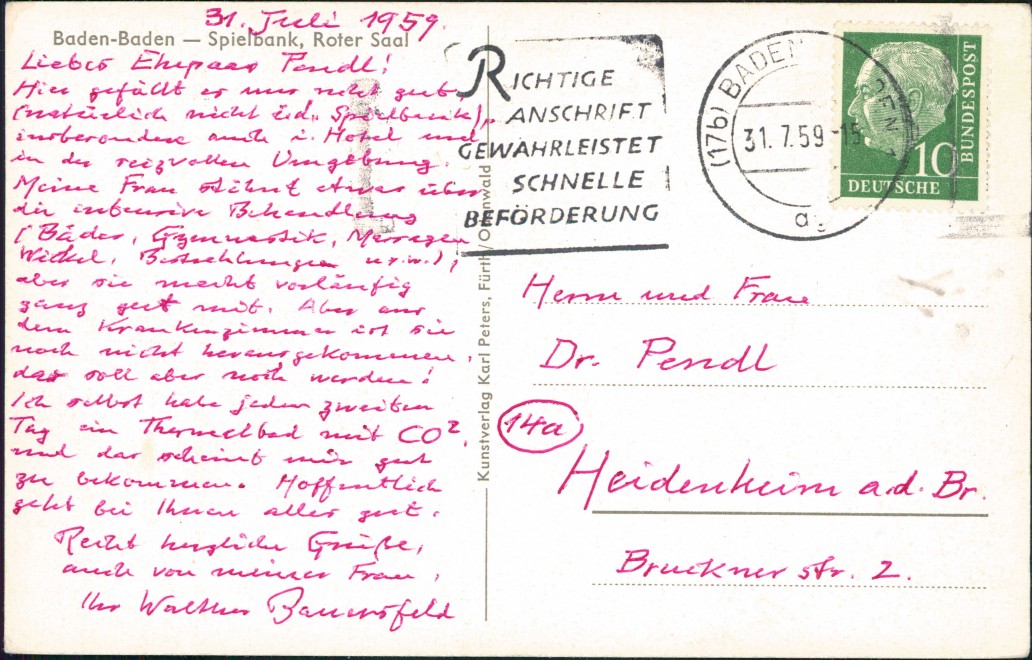 31. Juli 1959.
Baden-Baden — Spielbank, Roter Saal
Liebes Ehepaar Pendl!
Hier gefällt es uns recht gut
(natürlich nicht i.d. Spielbank),
insbesondere auch i. Hotel und
in der reizvollen Umgebung.
Meine Frau stöhnt etwas über
die intensive Behandlung
(Bäder, Gymnastik, Massagen
Wickel, Bestrahlungen u.s.w.),
aber sie macht vorläufig
ganz gut mit. Aber aus
dem Krankenzimmer ist sie
noch nicht herausgekommen,
das soll aber noch werden!
Ich selbst habe jeden zweiten
Tag ein Thermalbad mit CO2,
und das scheint mir gut
zu bekommen. Hoffentlich
geht bei Ihnen alles gut.
Recht herzliche Grüße,
auch von meiner Frau,
Ihr Walther Bauersfeld
Kunstverlag Karl Peters, Fürth/Odenwald
RICHTIGE
ANSCHRIFT
GEWÄHRLEISTET
SCHNELLE
BEFÖRDERUNG
(17b) BADEN-BADEN 1
31.7.59-15
a
10
DEUTSCHE
BUNDESPOST
Herrn und Frau
Dr. Pendl
14a
Heidenheim a.d. Br.
Brucknerstr. 2.